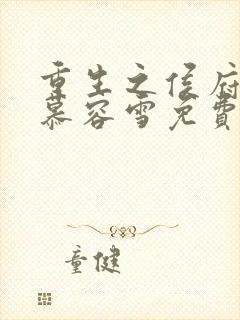 重生之侯府
慕容雪免费
童健